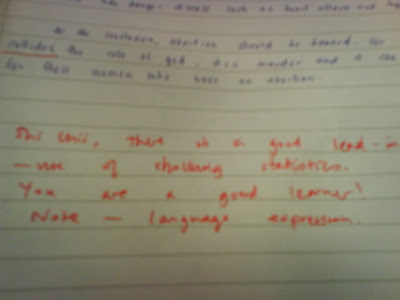 danger disease such as heart attack and high
As the conclusion, abortion should be banned. For
collides the rule of god, it is murder and it can
for their women who have an abortion.
there is a good lead-in
— use of shocking statistics.
You are a good learner!
Note — language expression.